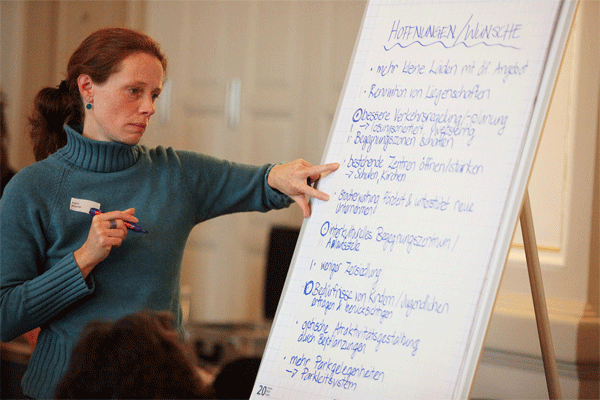 HOFFNUNGEN/WÜNSCHE
• mehr kleine Läden mit dif. Angebot
• Renovation von Liegenschaften
bessere Verkehrsregelung/-planung
→ lösungsorientiert
Begegnungszonen schaffen
• bestehende Zentren öffnen/stärken
→ Schulen, Kirchen
fördert & unterstützt neue
Unternehmen/
Interkulturelles Begegnungszentrum/
Anlaufstelle
weniger Zersiedlung
Bedürfnisse von Kindern/Jugendlichen
erfragen & berücksichtigen
• optische Attraktivitätsgestaltung
durch Bepflanzungen
• mehr Parkgelegenheiten
→ Parkleitsystem
20